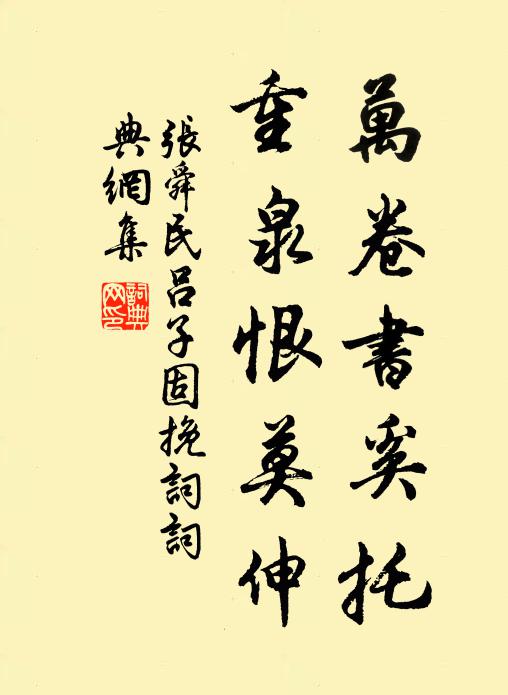 萬卷書奚托
重泉恨莫伸
張舜民呂子固挽詞詞
典網集
詞典網印